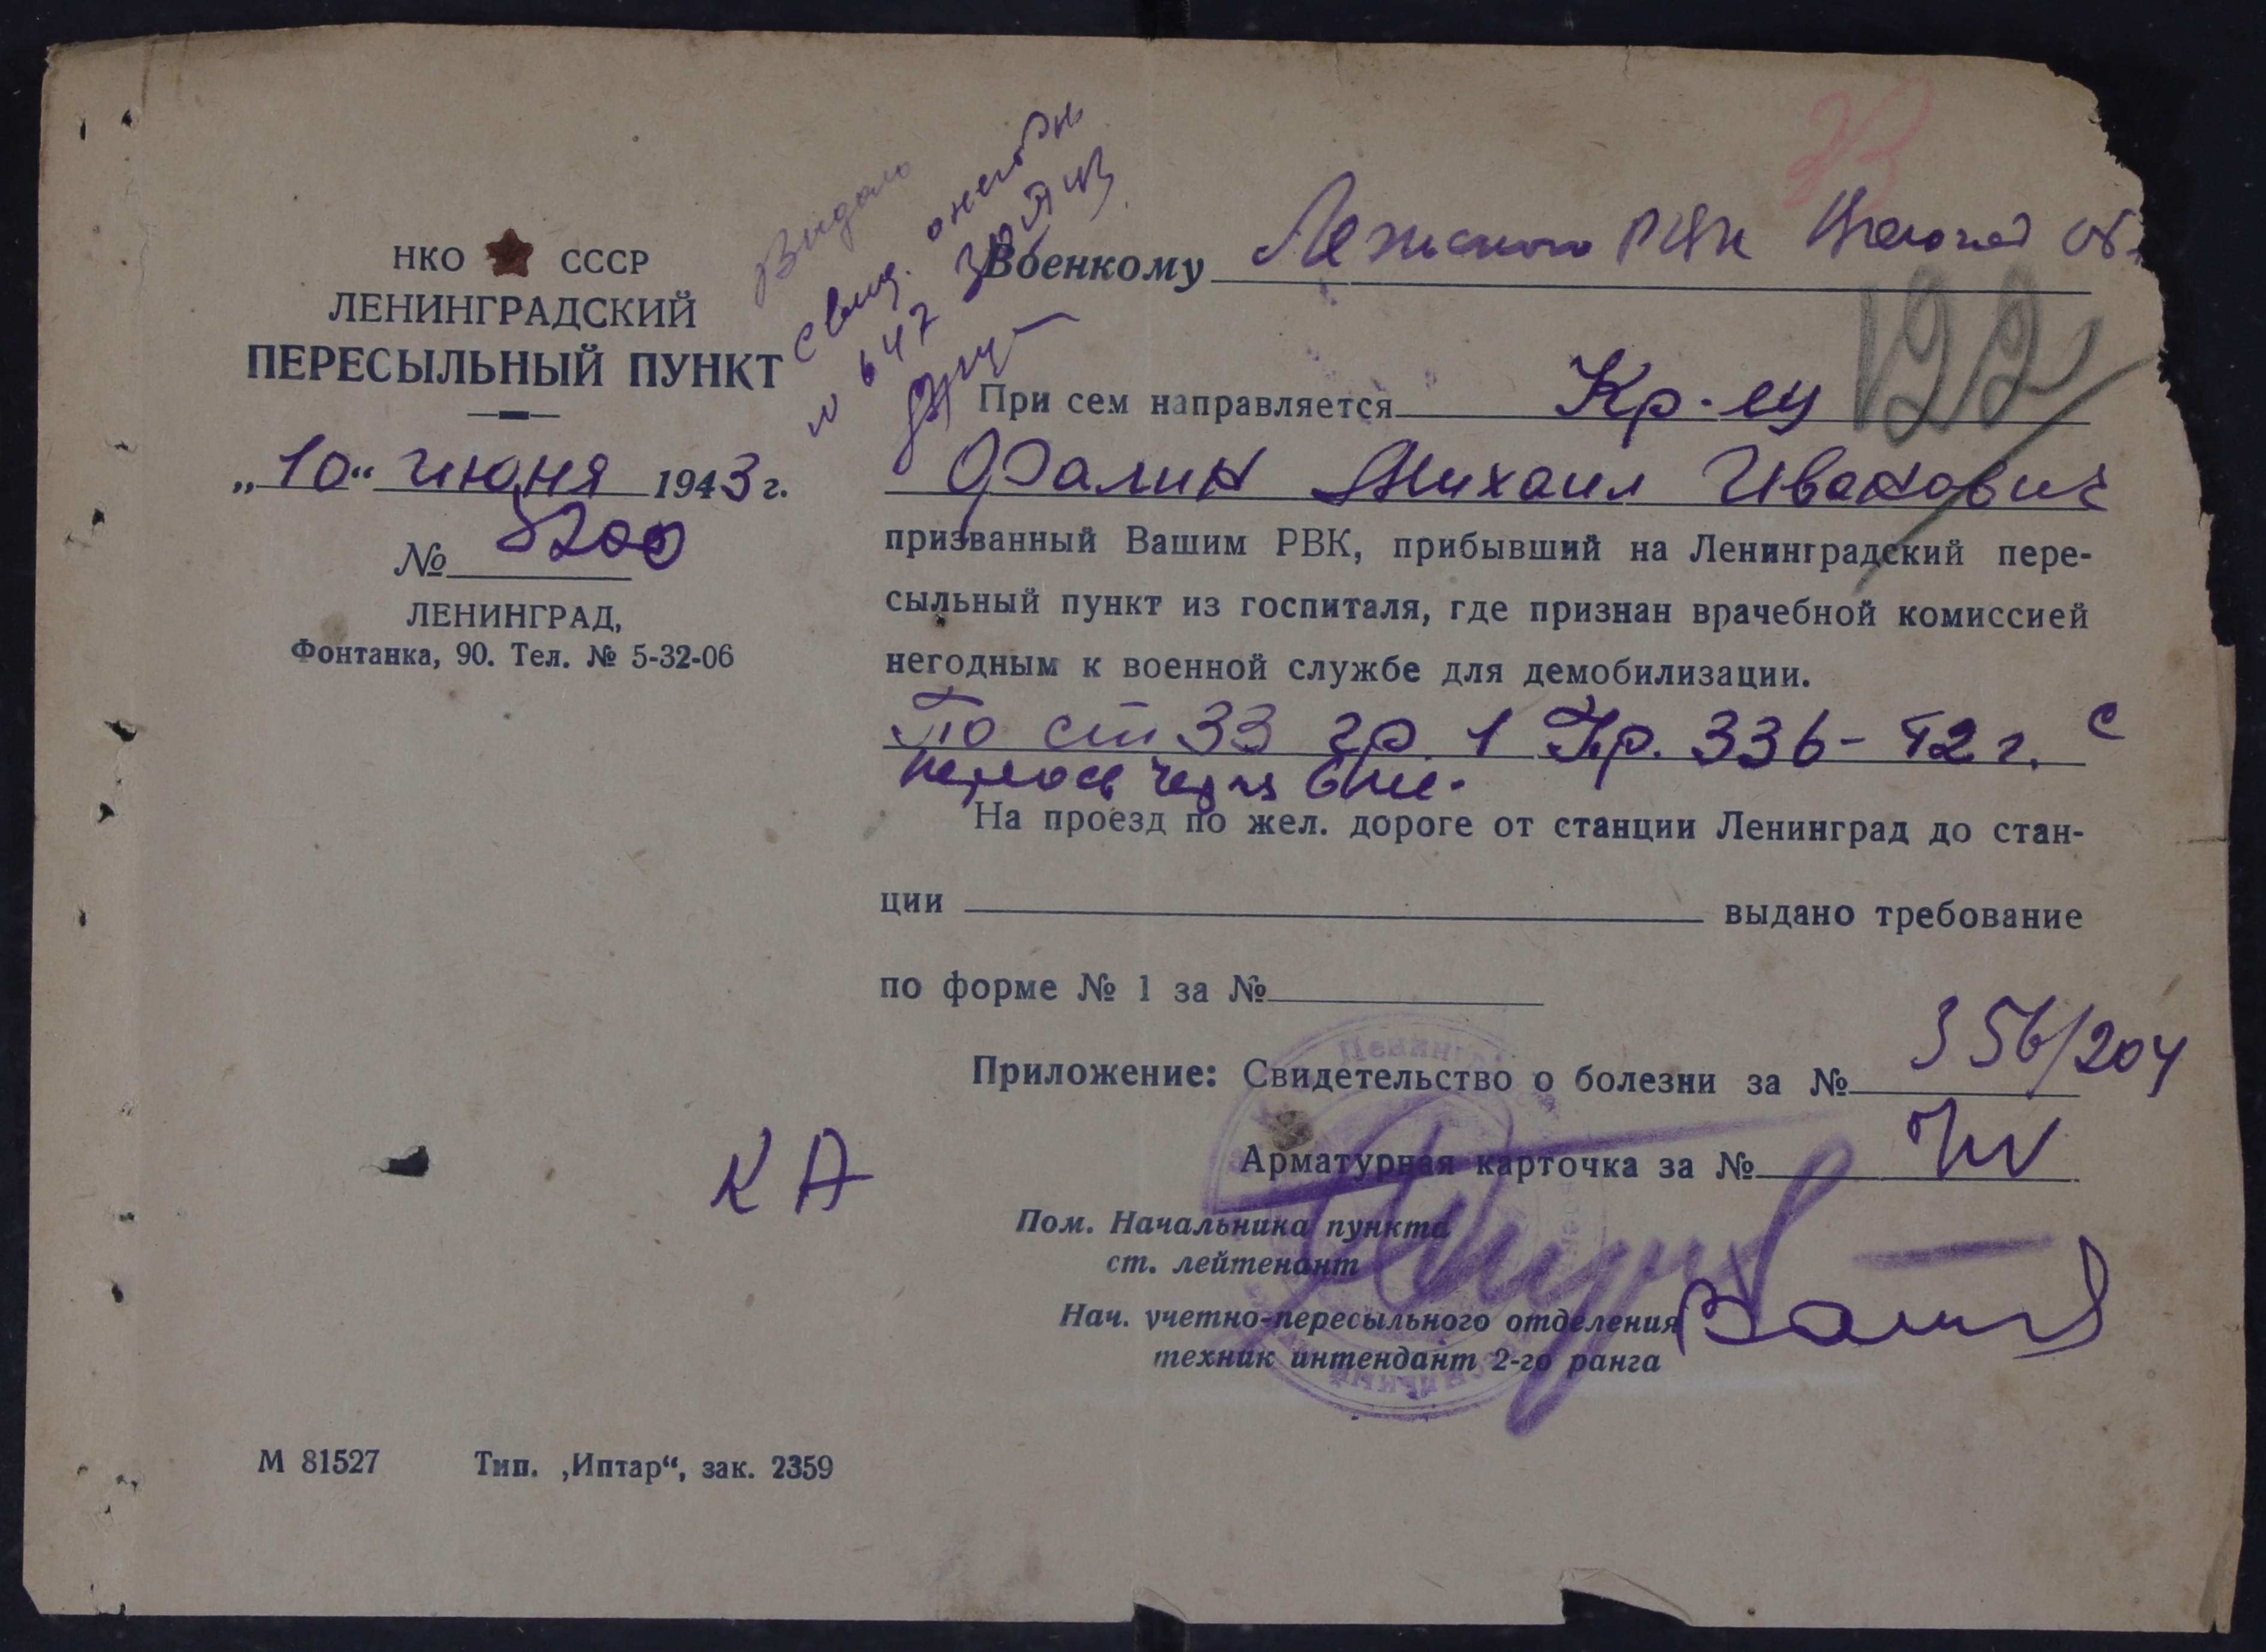 НКО СССР
ЛЕНИНГРАДСКИЙ
ПЕРЕСЫЛЬНЫЙ ПУНКТ
„10“ июня 1943 г.
№ 5200
ЛЕНИНГРАД,
Фонтанка, 90. Тел. № 5-32-06
Выдано
свид.
№ 647
Военкому Лежского РВК Вологод об.
122
При сем направляется Кр-ец
Фалин Михаил Иванович
призванный Вашим РВК, прибывший на Ленинградский пере-
сыльный пункт из госпиталя, где признан врачебной комиссией
негодным к военной службе для демобилизации.
По ст 33 гр. 1 Пр. 336-42 г. с
через 6 мес.
На проезд по жел. дороге от станции Ленинград до стан-
ции выдано требование
по форме № 1 за №
Приложение: Свидетельство о болезни за № 356/204
Арматурная карточка за №
КА
Пом. Начальника пункта
ст. лейтенант
Нач. учетно-пересыльного отделения
техник интендант 2-го ранга
М 81527 Тип. „Иптар“, зак. 2359